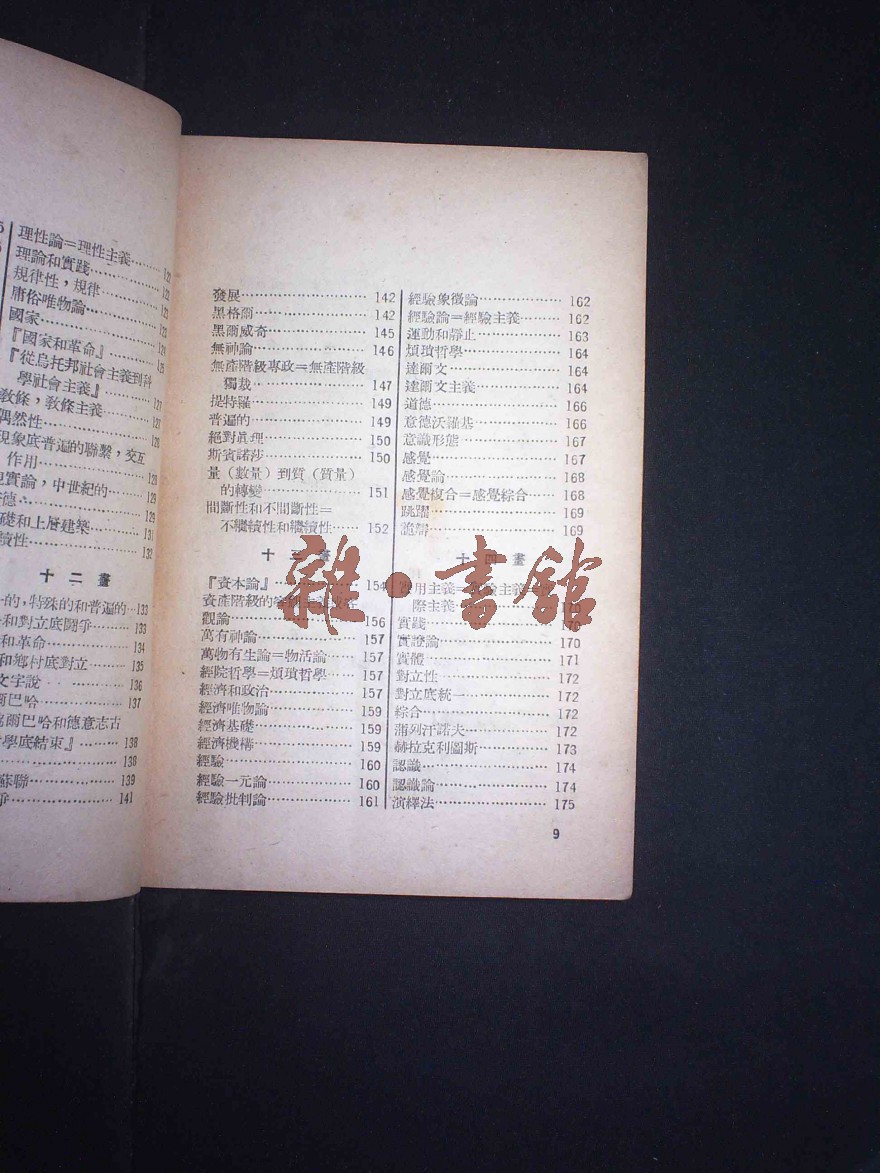 理性論＝理性主義
理論和實踐
規律性，規律
庸俗唯物論
國家
『國家和革命』
『從烏托邦社會主義到科
學社會主義』
教條，教條主義
偶然性
現象底普遍的聯繫，交互
作用
實論，中世紀的 129
德 129
礎和上層建築 131
續性 132
十二畫
的，特殊的和普遍的 133
和對立底鬪爭 133
和革命 134
和鄉村底對立 135
文字說 136
爾巴哈 137
爾巴哈和德意志古
學底結束』 138
138
蘇聯 139
141
發展 142
黑格爾 142
黑爾威奇 145
無神論 146
無產階級專政＝無產階級
獨裁 147
提特羅 149
普遍的 149
絕對眞理 150
斯賓諾莎 150
量（數量）到質（質量）
的轉變 151
間斷性和不間斷性＝
不繼續性和繼續性 152
十三畫
『資本論』 154
資產階級的客觀主
觀論 156
萬有神論 157
萬物有生論＝物活論 157
經院哲學＝煩瑣哲學 157
經濟和政治 157
經濟唯物論 159
經濟基礎 159
經濟機構 159
經驗 160
經驗一元論 160
經驗批判論 161
經驗象徵論 162
經驗論＝經驗主義 162
運動和靜止 163
煩瑣哲學 164
達爾文 164
達爾文主義 164
道德 166
意德沃羅基 166
意識形態 167
感覺 167
感覺論 168
感覺複合＝感覺綜合 168
跳躍 169
詭辯 169
十四畫
實用主義＝
際主義
實踐
實證論 170
實體 171
對立性 172
對立底統一 172
綜合 172
蒲列汗諾夫 172
赫拉克利圖斯 173
認識 174
認識論 174
演繹法 175
9
雜·書館